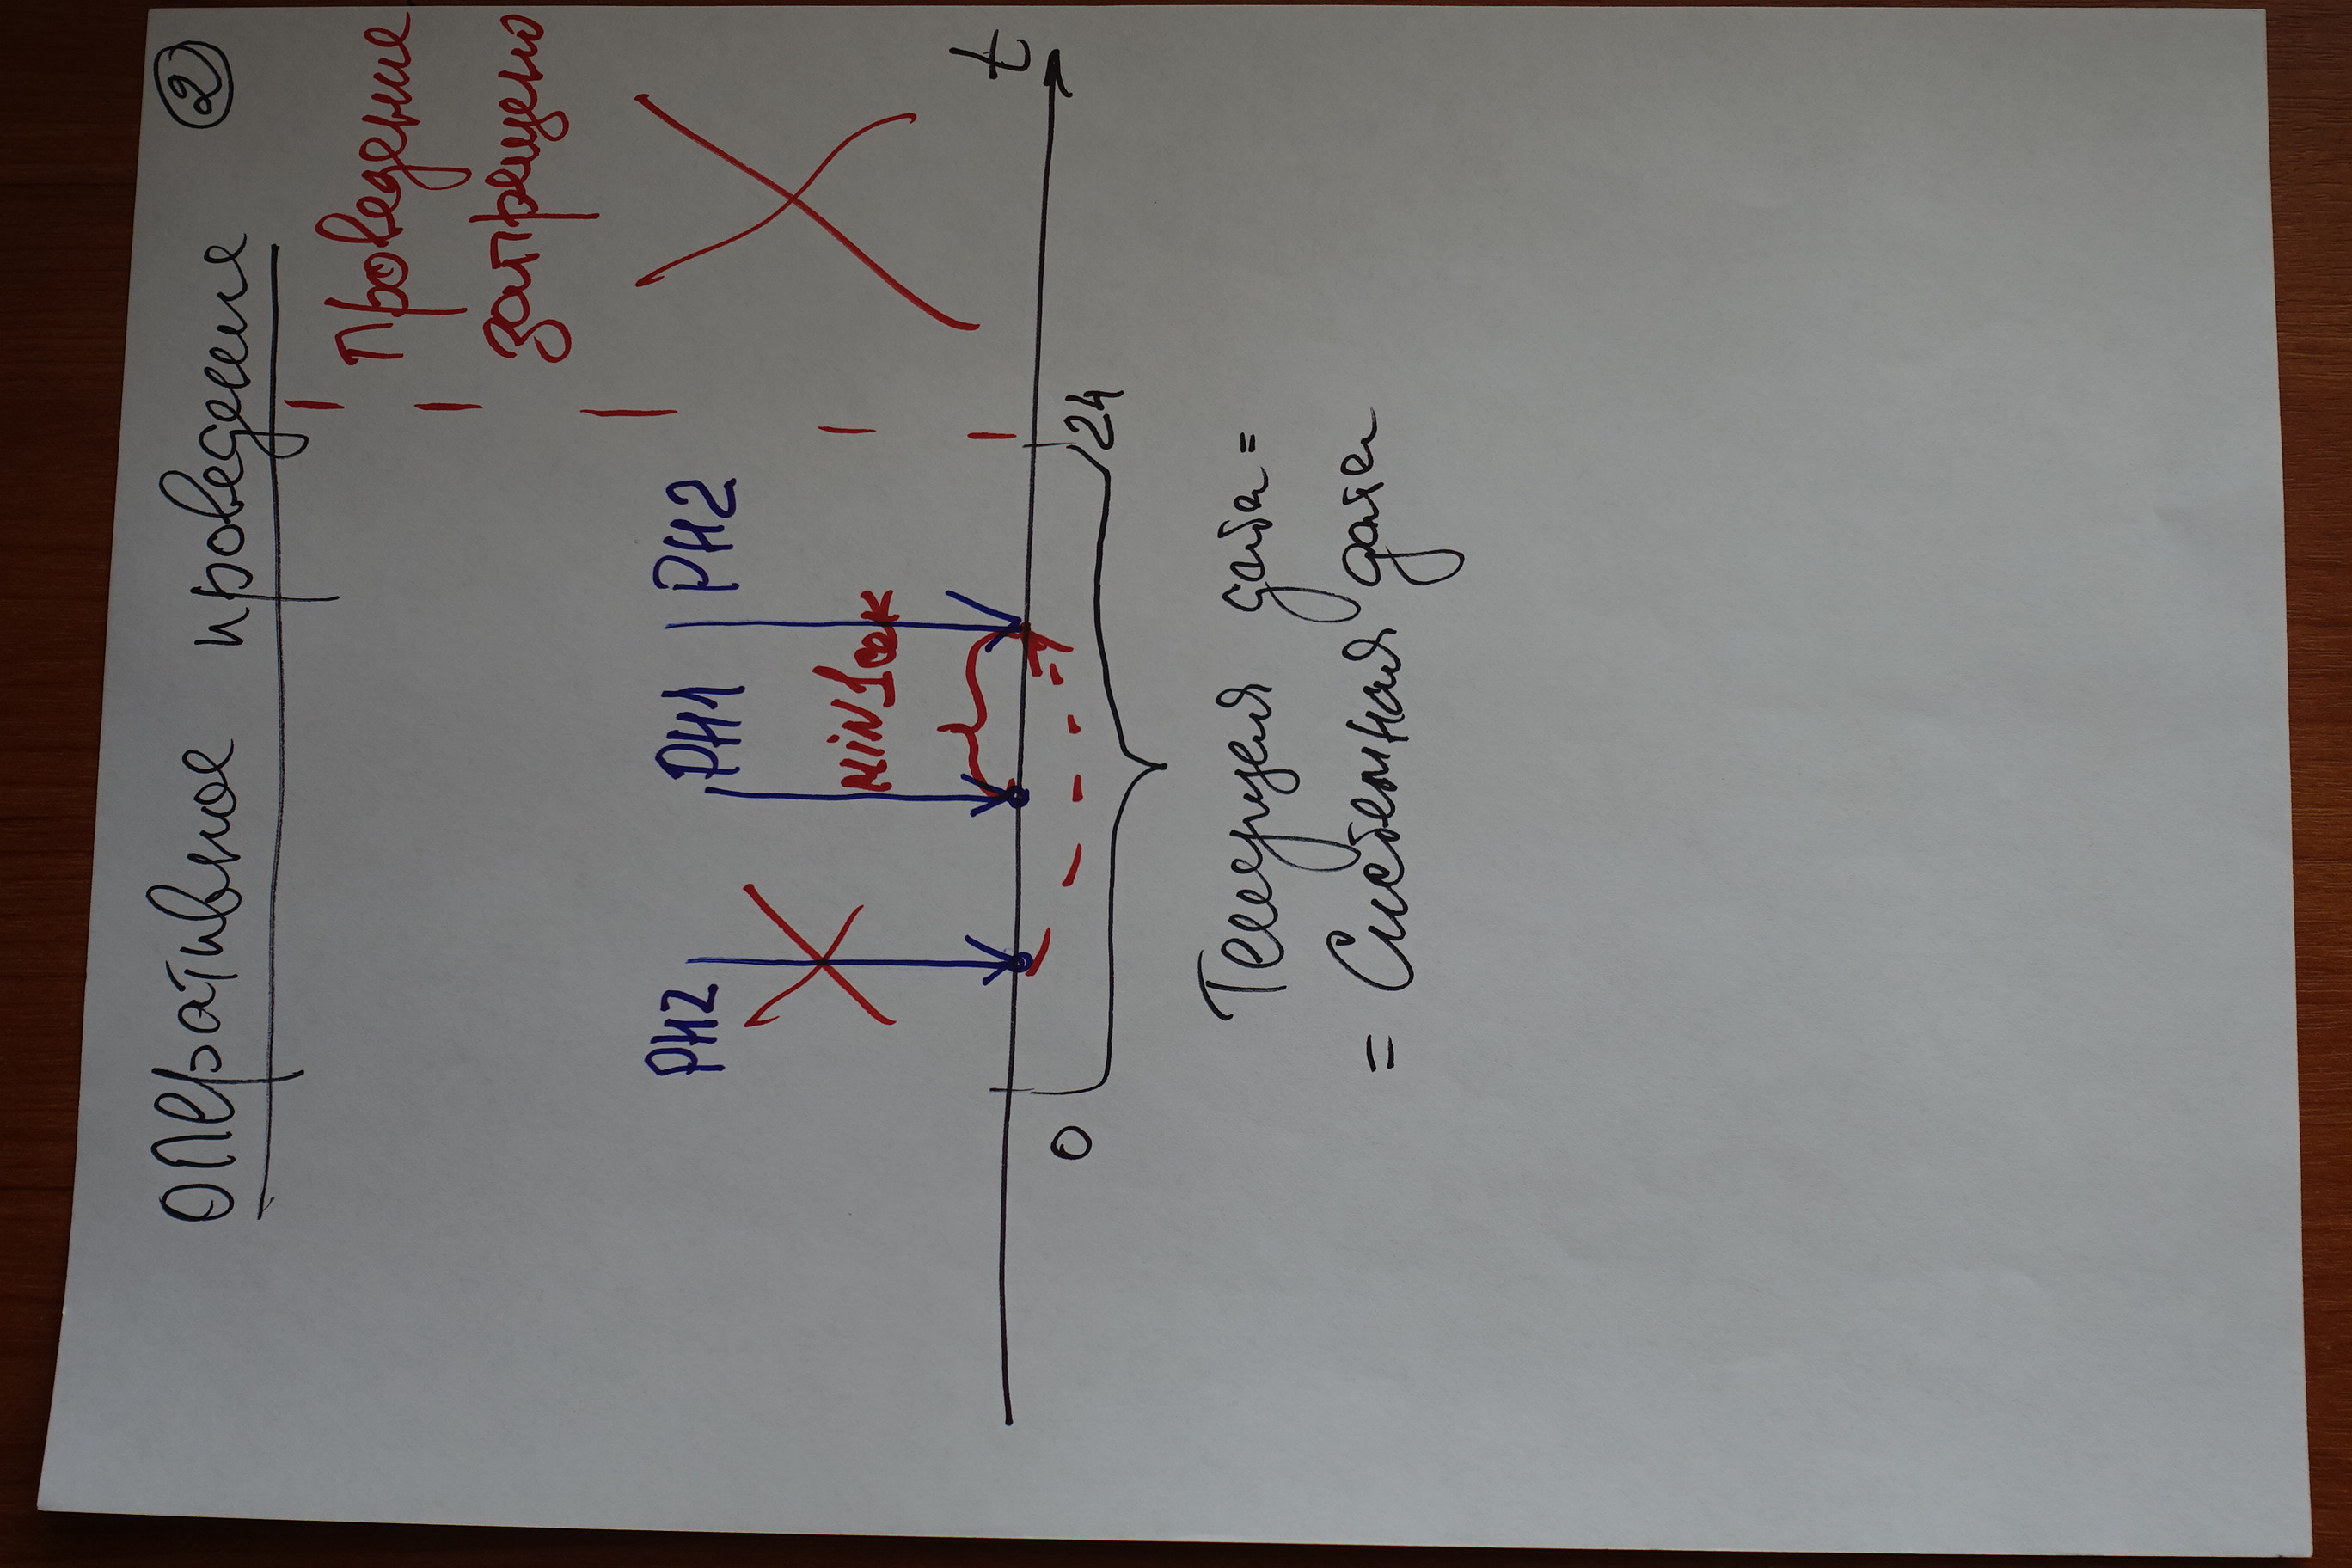 Оперативное проведение
2
Проведение
запрещено
РН2
РН1
РН2
MiN 1 сек
t
0
24
Текущая дата =
= Системная дата